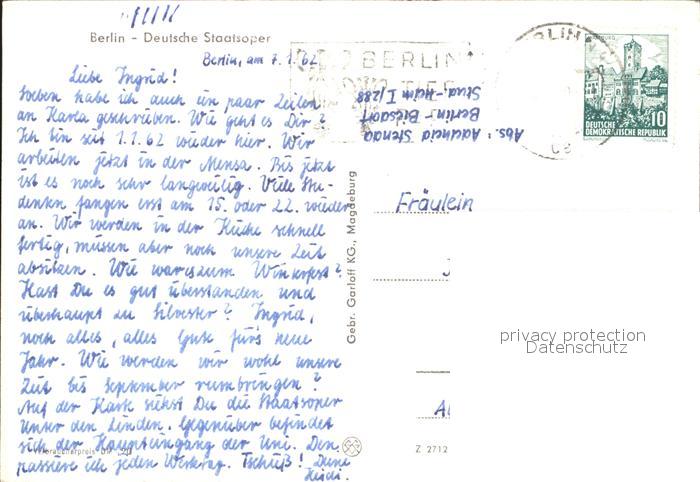 Berlin - Deutsche Staatsoper
Berlin, am 7.1.62
Liebe Ingrid!
Soeben habe ich auch ein paar Zeilen
an Karla geschrieben. Wie geht es Dir?
Ich bin seit 1.1.62 wieder hier. Wir
arbeiten jetzt in der Mensa. Bis jetzt
ist es noch sehr langweilig. Viele Stu-
denten fangen erst am 15. oder 22. wieder
an. Wir werden in der Küche schnell
fertig, müssen aber noch unsere Zeit
absitzen. Wie war es zum Winterfest?
Hast Du es gut überstanden und
überhaupt zu Silvester? Ingrid,
noch alles, alles Gute für's neue
Jahr. Wie werden wir wohl unsere
Zeit bis September rumbringen?
Auf der Karte siehst Du die Staatsoper
Unter den Linden. Gegenüber befindet
sich der Haupteingang der Uni. Den
passiere ich jeden Werktag. Tschüß! Deine
Heidi.
Gebr. Garloff KG., Magdeburg
BERLIN
Abs.:
Berlin-Biesdorf
Stud.-Heim I/288
BERLIN
DEUTSCHE
DEMOKRATISCHE REPUBLIK
10
Fräulein
J
A
Z 2712
privacy protection
Datenschutz